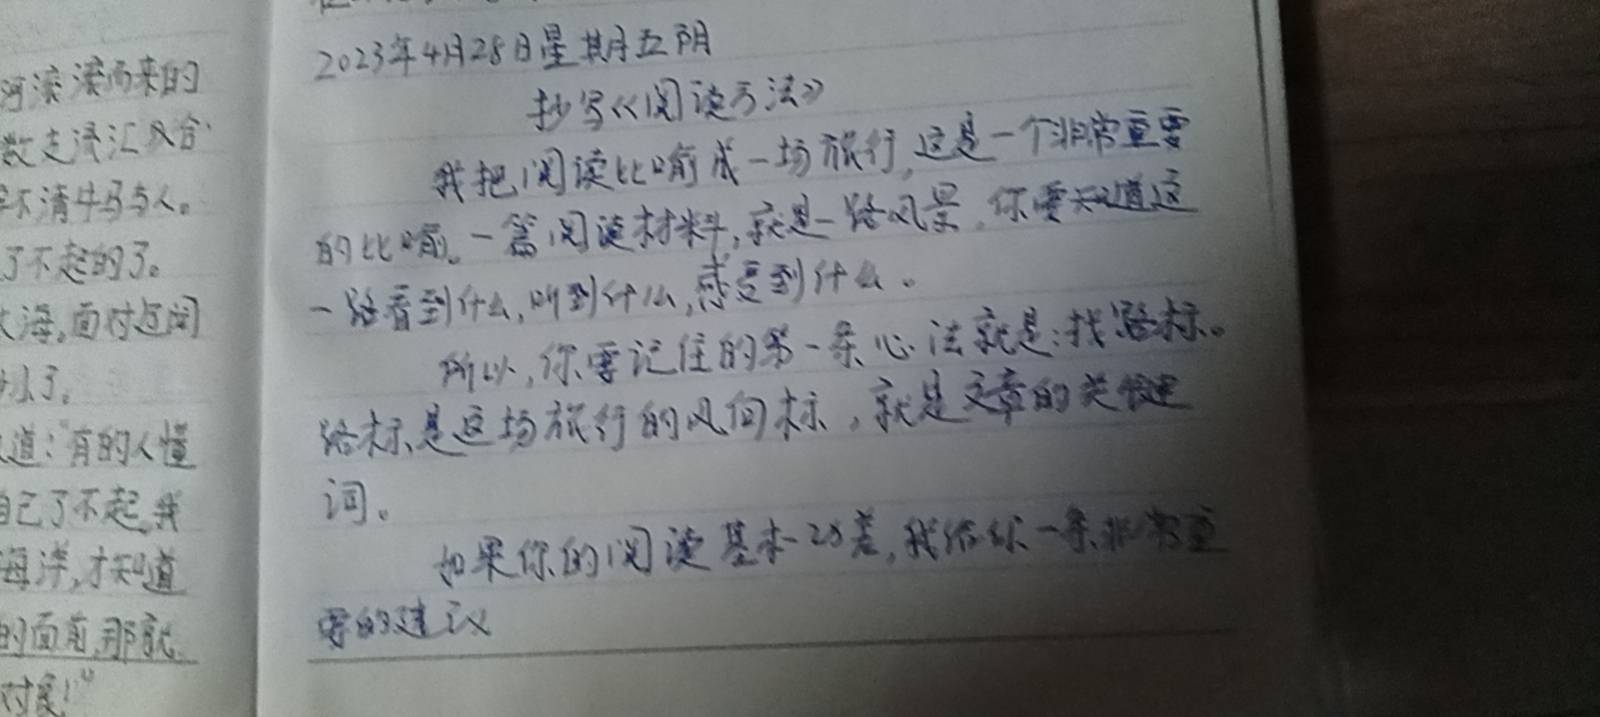 河滚滚而来的
数支流汇以合
不清牛马与人。
了不起的了。
大海,面对辽阔
什么了。
道:“有的人懂
自己了不起,我
海洋,才知道
的面前,那就
对度!”
2023年4月28日星期五阴
抄写《阅读方法》
我把阅读比喻成一场旅行,这是一个非常重要
的比喻。一篇阅读材料,就是一路风景,你要知道这
一路看到什么,听到什么,感受到什么。
所以,你需记住的第一条心法就是:找路标。
路标是这场旅行的风向标,就是文章的关键
词。
如果你的阅读基本功差,我给你一条非常重
要的建议